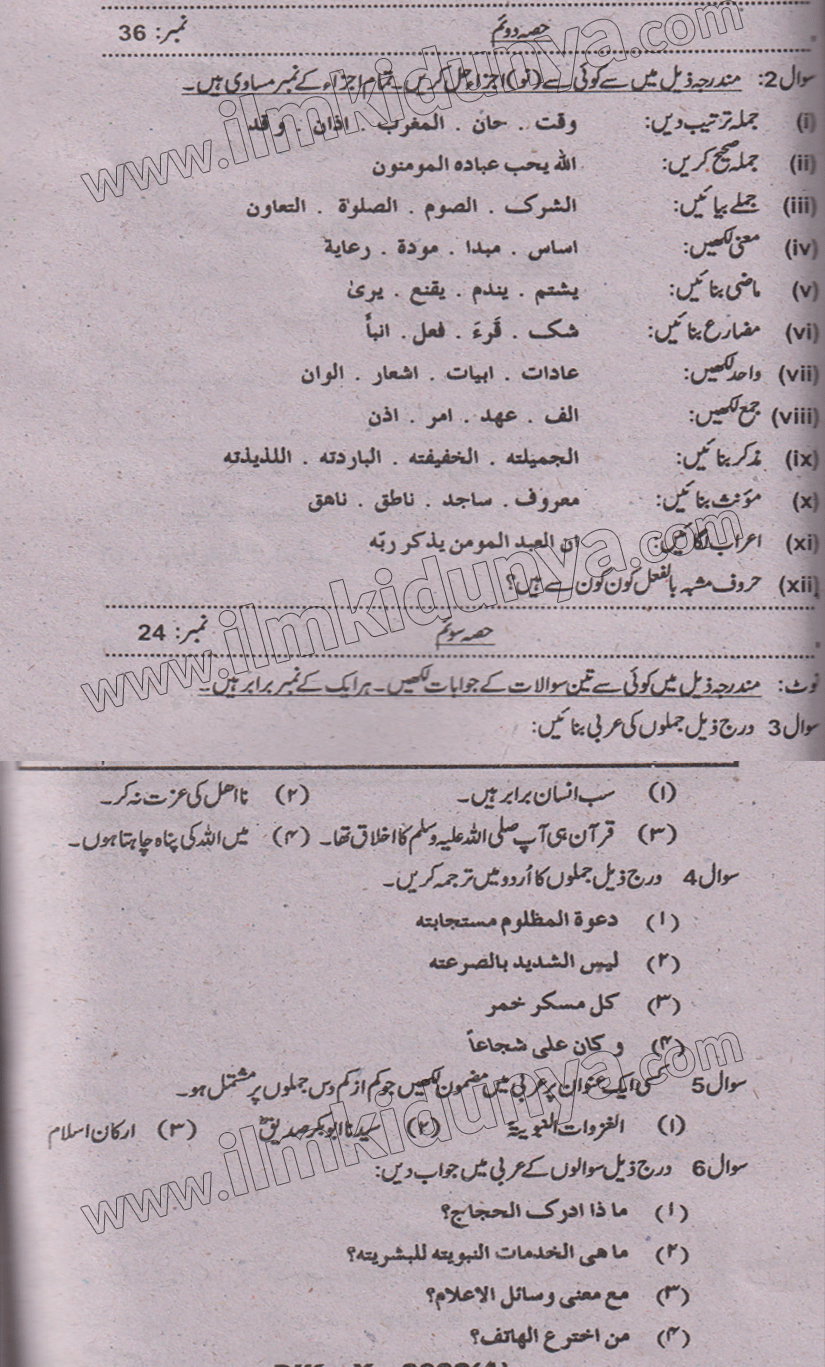 حصہ دوئم نمبر: 36
سوال 2: مندرجہ ذیل میں سے کوئی سے (نو) اجزاء حل کریں۔ تمام اجزاء کے نمبر مساوی ہیں۔
(i) جملہ ترتیب دیں: وقت . حان . المغرب . اذان . وقد
(ii) جملہ صحیح کریں: اللہ یحب عبادہ المومنون
(iii) جملے بنائیں: الشرک . الصوم . الصلوۃ . التعاون
(iv) معنی لکھیں: اساس . مبدا . مودۃ . رعایۃ
(v) ماضی بنائیں: یشتم . یندم . یقنع . یریٰ
(vi) مضارع بنائیں: شک . قَرءَ . فعل . انبأً
(vii) واحد لکھیں: عادات . ابیات . اشعار . الوان
(viii) جمع لکھیں: الف . عھد . امر . اذن
(ix) مذکر بنائیں: الجمیلتہ . الخفیفتہ . الباردتہ . اللذیذتہ
(x) مؤنث بنائیں: معروف . ساجد . ناطق . ناھق
(xi) اعراب لگائیں: ان العبد المومن یذکر ربّہ
(xii) حروف مشبہ بالفعل کون کون سے ہیں؟
حصہ سوئم نمبر: 24
نوٹ: مندرجہ ذیل میں کوئی سے تین سوالات کے جوابات لکھیں۔ ہر ایک کے نمبر برابر ہیں۔
سوال 3 درج ذیل جملوں کی عربی بنائیں:
(۱) سب انسان برابر ہیں۔ (۲) نا اھل کی عزت نہ کر۔
(۳) قرآن ہی آپ صلی اللہ علیہ وسلم کا اخلاق تھا۔ (۴) میں اللہ کی پناہ چاہتا ہوں۔
سوال 4 درج ذیل جملوں کا اُردو میں ترجمہ کریں۔
(۱) دعوۃ المظلوم مستجابتہ
(۲) لیس الشدید بالصرعتہ
(۳) کل مسکر خمر
(۴) و کان علی شجاعاً
سوال 5 کسی ایک عنوان پر عربی میں مضمون لکھیں جو کم از کم دس جملوں پر مشتمل ہو۔
(۱) الغزوات النبویۃ (۲) سیدنا ابوبکر صدیقؓ (۳) ارکان اسلام
سوال 6 درج ذیل سوالوں کے عربی میں جواب دیں:
(۱) ما ذا ادرک الحجاج؟
(۲) ما ھی الخدمات النبویتہ للبشریتہ؟
(۳) مع معنی وسائل الاعلام؟
(۴) من اخترع الھاتف؟
www.ilmkidunya.com
www.ilmkidunya.com
www.ilmkidunya.com